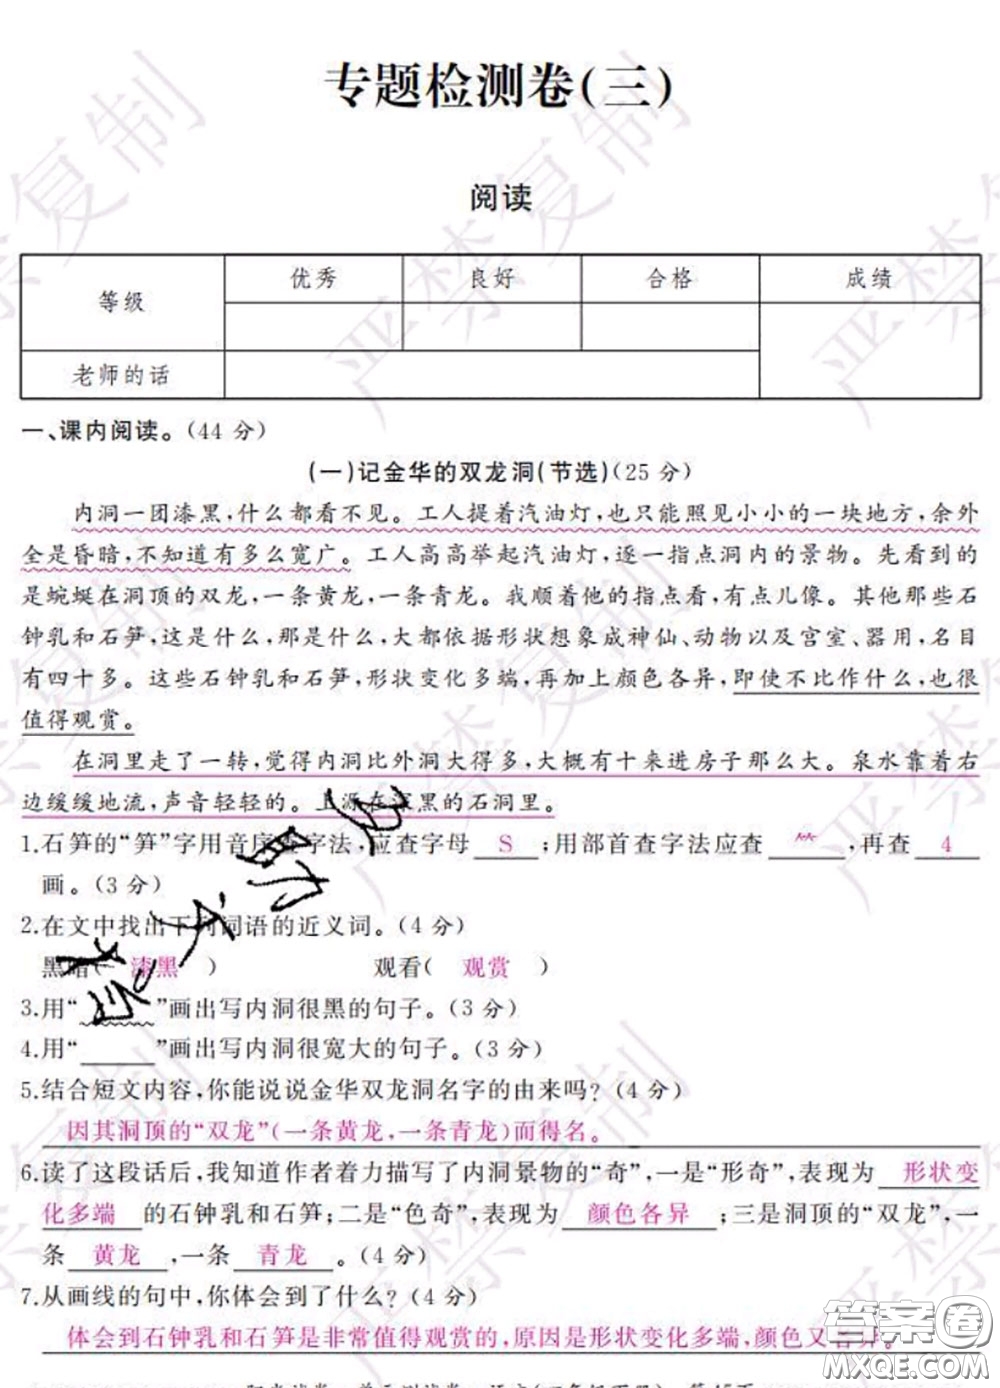 专题检测卷(三)
阅读
等级 优秀 良好 合格 成绩
老师的话
一、课内阅读。(44 分)
(一)记金华的双龙洞(节选)(25 分)
内洞一团漆黑,什么都看不见。工人提着汽油灯,也只能照见小小的一块地方,余外
全是昏暗,不知道有多么宽广。工人高高举起汽油灯,逐一指点洞内的景物。先看到的
是蜿蜒在洞顶的双龙,一条黄龙,一条青龙。我顺着他的指点看,有点儿像。其他那些石
钟乳和石笋,这是什么,那是什么,大都依据形状想象成神仙、动物以及宫室、器用,名目
有四十多。这些石钟乳和石笋,形状变化多端,再加上颜色各异,即使不比作什么,也很
值得观赏。
在洞里走了一转,觉得内洞比外洞大得多,大概有十来进房子那么大。泉水靠着右
边缓缓地流,声音轻轻的。上源在深黑的石洞里。
1.石笋的“笋”字用音序查字法,应查字母 S ;用部首查字法应查 ⺮ ,再查 4
画。(3 分)
2.在文中找出下列词语的近义词。(4 分)
黑暗( 漆黑 ) 观看( 观赏 )
3.用“”画出写内洞很黑的句子。(3 分)
4.用“____”画出写内洞很宽大的句子。(3 分)
5.结合短文内容,你能说说金华双龙洞名字的由来吗?(4 分)
因其洞顶的“双龙”(一条黄龙,一条青龙)而得名。
6.读了这段话后,我知道作者着力描写了内洞景物的“奇”,一是“形奇”,表现为 形状变
化多端 的石钟乳和石笋;二是“色奇”,表现为 颜色各异 ;三是洞顶的“双龙”,一
条 黄龙 ,一条 青龙 。(4 分)
7.从画线的句中,你体会到了什么?(4 分)
体会到石钟乳和石笋是非常值得观赏的,原因是形状变化多端,颜色又各异。
答案圈
MXQE.COM
严禁复制